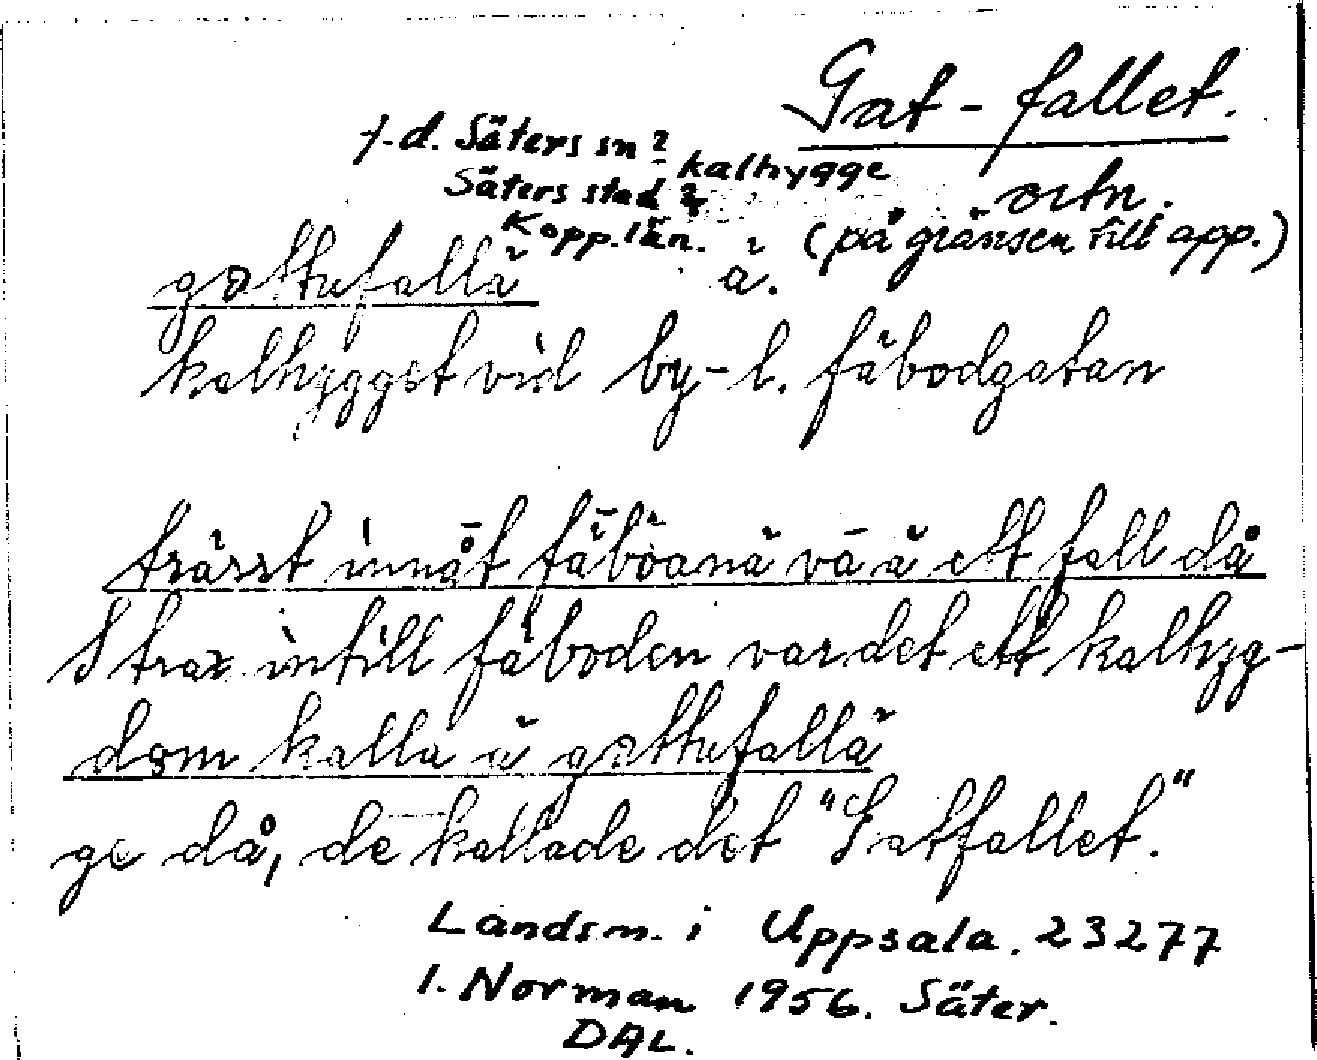 Gat-fallet.
f.d. Säters sn? kalhygge
Säters stad? ortn.
Kopp.län. (på gränsen till app.)
gattufallä ä.
kalhygget vid by- l. fäbodgatan
trässt innåt fäboanä va ä ett fall då
Strax intill fäboden var det ett kalhyg-
dom kalla ä gattufallä
ge då, de kallade det "Gatfallet."
Landsm. i Uppsala. 23277
I. Norman 1956. Säter.
DAL.